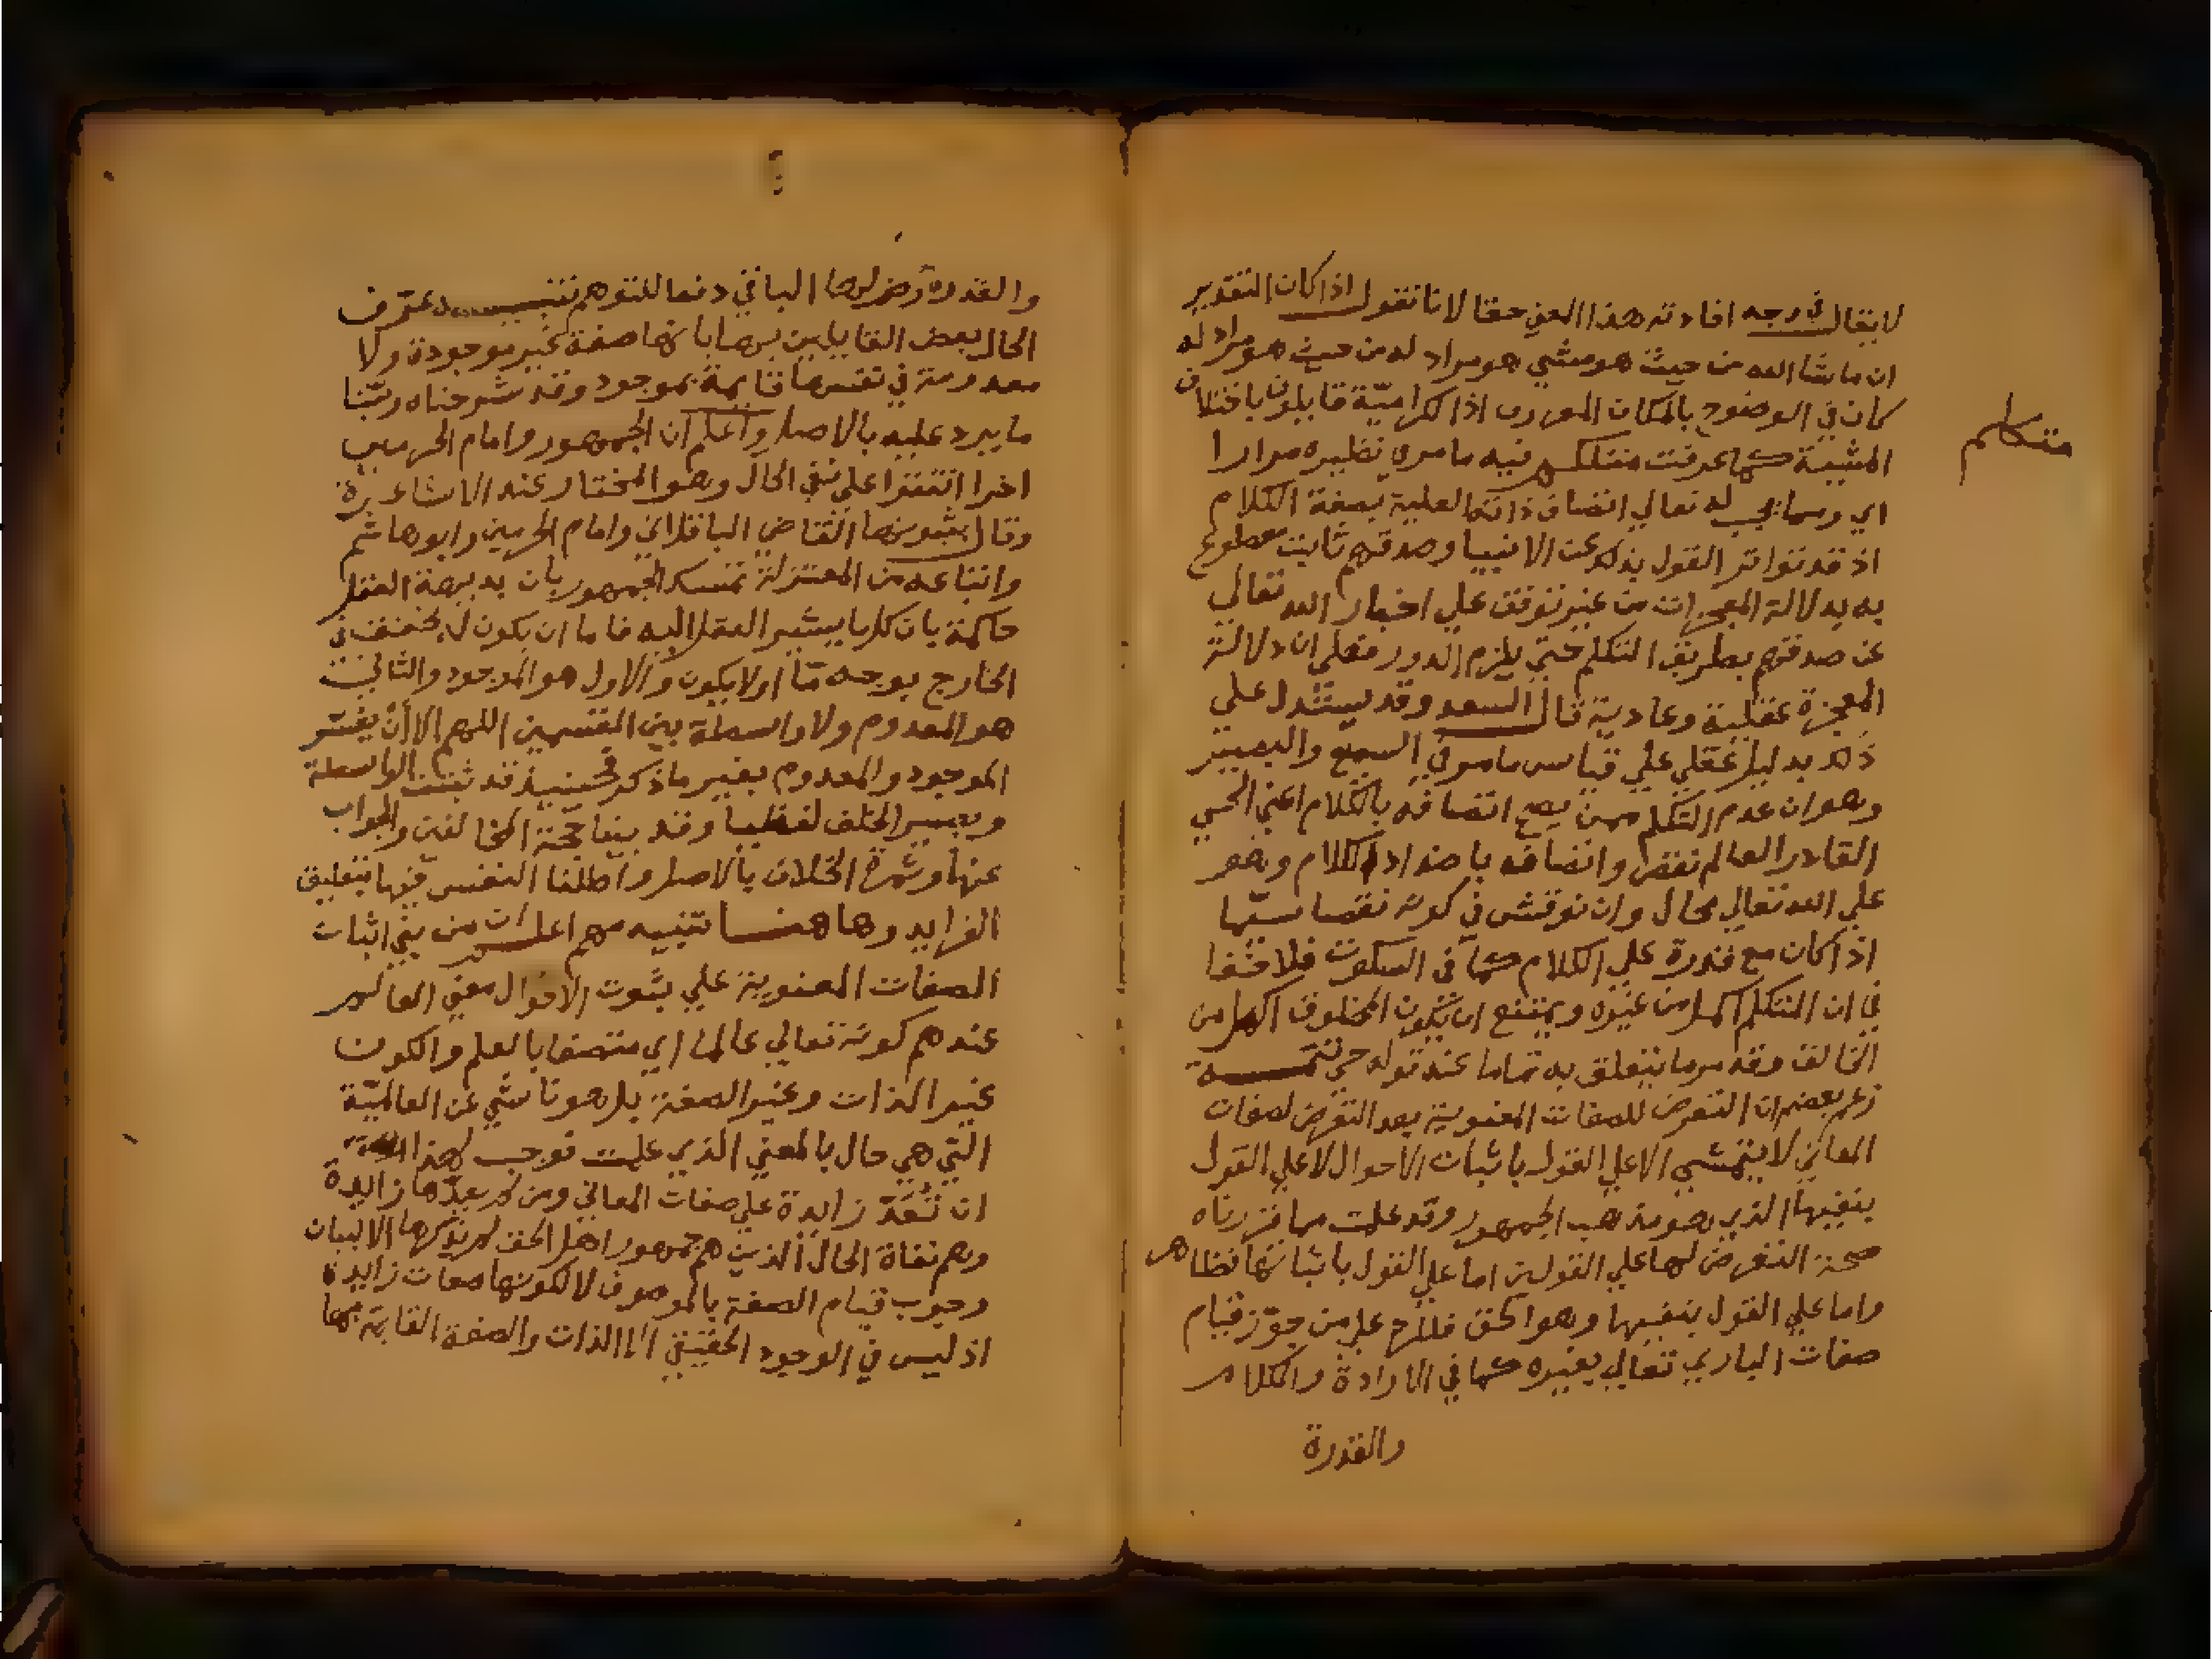 لا يقال في وجه افادته هذا المعني حقا لانا نقول اذا كان التقدير
ان ما شا الله من حيث هو مشي هو مراد له من حيث هو مراد له
كان في الوضوح بالمكان المعروف اذ الكرامية قايلون باختلاف
المشيية كما عرفت متكلم فيه ما مر في نظيره مرارا
متكلم
اي ومما يجب له تعالي اتصاف ذاته العلية بصفة الكلام
اذ قد تواتر القول بذلك عن الانبيا وصدقهم ثابت مقطوع
به بدلالة المعجزات من غير توقف علي اخبار الله تعالي
عن صدقهم بطريق التكلم حتي يلزم الدور فعلي ان دلالة
المعجزة عقلية وعادية قال السعد وقد يستدل علي
ذلك بدليل عقلي علي قياس ما مر في السميع والبصير
وهو ان عدم التكلم ممن يصح اتصافه بالكلام اعني الحي
القادر العالم نقص واتصافه باضداد الكلام وهو
علي الله تعالي محال وان نوقش في كونه نقصا سيما
اذا كان مع قدرة علي الكلام كما في السكوت فلا خفا
في ان المتكلم اكمل من غيره ويمتنع ان يكون المخلوق اكمل من
الخالق وقد مر ما يتعلق به تماما عند قوله حي تتمة
زعم بعضهم ان التعرض للصفات المعنوية بعد التعرض لصفات
المعاني لا يتمشي الا علي القول باثبات الاحوال لا علي القول
بنفيها الذي هو مذهب الجمهور وقد علمت مما قررناه
صحة التعرض لها علي القولين اما علي القول باثباتها فظاهر
واما علي القول بنفيها وهو الحق فللرد علي من جوز قيام
صفات الباري تعالي بغيره كما في الارادة والكلام
والقدرة
والقدرة وتعرض لها الباقي دفعا للتوهم تنبيه عرف
الحال بعض القايلين بها بانها صفة غير موجودة ولا
معدومة في نفسها قايمة بموجود وقد شرحناه وبينا
ما يرد عليه بالاصل واعلم ان الجمهور وامام الحرمين
اخرا اتفقوا علي نفي الحال وهو المختار عند الاشاعرة
وقال بثبوتها القاضي الباقلاني وامام الحرمين وابو هاشم
واتباعه من المعتزلة تمسك الجمهور بان بديهة العقل
حاكمة بان كل ما يشير العقل اليه فاما ان يكون له تحقق في
الخارج بوجه ما او لا يكون والاول هو الموجود والثاني
هو المعدوم ولا واسطة بين القسمين اللهم الا ان يفسر
الموجود والمعدوم بغير ما ذكر فحينيذ قد ثبتت الواسطة
ويصير الخلف لفظيا وقد بينا حجة المخالفين والجواب
عنها وثمرة الخلاف بالاصل واطلنا النفس فيها بتعليق
الفرايد وهاهنا تنبيه مهم اعلم ان من بني اثبات
الصفات المعنوية علي ثبوت الاحوال معني العالم
عندهم كونه تعالي عالما اي متصفا بالعلم والكون
غير الذات وغير الصفة بل هو ناشي عن العالمية
التي هي حال بالمعني الذي علمت توجب لهذا
ان تُعَدّ زايدة علي صفات المعاني ومن لم يعدّها زايدة
وهم نفاة الحال الذين هم جمهور اهل الحق لم يذكرها الا لبيان
وجوب قيام الصفة بالموصوف لا لكونها صفات زايدة
اذ ليس في الوجود الحقيقي الا الذات والصفة القايمة بها